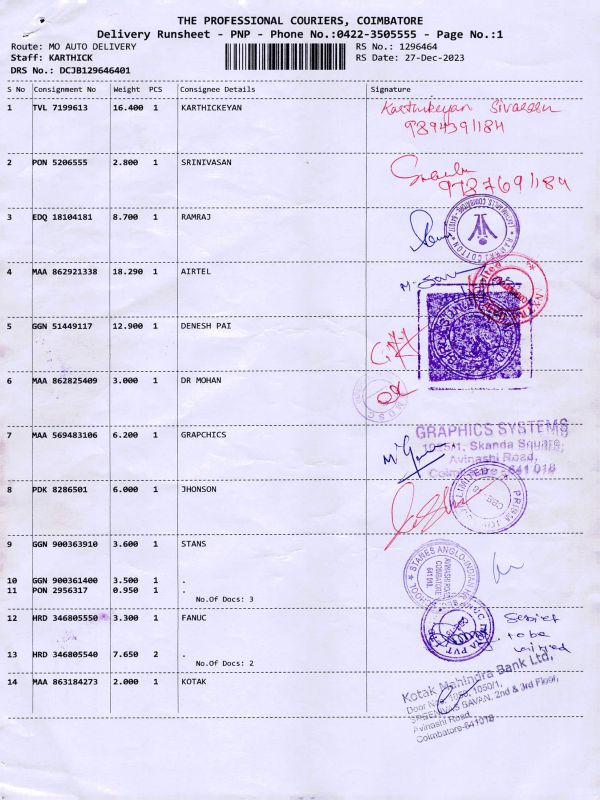 THE PROFESSIONAL COURIERS, COIMBATORE
Delivery Runsheet - PNP - Phone No.:0422-3505555 - Page No.:1
Route: MO AUTO DELIVERY
RS No.: 1296464
Staff: KARTHICK
RS Date: 27-Dec-2023
DRS No.: DCJB129646401
S No Consignment No Weight PCS Consignee Details Signature
1 TVL 7199613 16.400 1 KARTHICKEYAN
Karthikeyan
9894391184
2 PON 5206555 2.800 1 SRINIVASAN
3 EDQ 18104181 8.700 1 RAMRAJ
RAMRAJ COTTON
4 MAA 862921338 18.290 1 AIRTEL
5 GGN 51449117 12.900 1 DENESH PAI
6 MAA 862825409 3.000 1 DR MOHAN
7 MAA 569483106 6.200 1 GRAPCHICS
GRAPHICS SYSTEMS
Skanda Square,
Avinashi Road,
Coimbatore - 641 018
8 PDK 8286501 6.000 1 JHONSON
LIMITED
PRISM JOH
CBE
9 GGN 900363910 3.600 1 STANS
STANES ANGLO-INDIAN
SCHOOL
AVINASHI ROAD
COIMBATORE
10 GGN 900361400 3.500 1 .
11 PON 2956317 0.950 1 .
No.Of Docs: 3
12 HRD 346805550 3.300 1 FANUC
INDIA PVT
to be
13 HRD 346805540 7.650 2 .
No.Of Docs: 2
14 MAA 863184273 2.000 1 KOTAK
Kotak Mahindra Bank Ltd,
Door No. 1050, 1050/1,
SREENIVAS BAVAN, 2nd & 3rd Floor,
Avinashi Road,
Coimbatore-641018